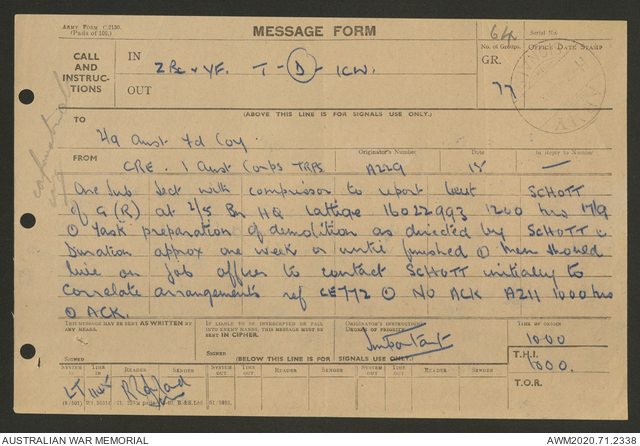 ARMY FORM C.2130.
(Pads of 100.)
MESSAGE FORM
Serial No.
CALL AND INSTRUCTIONS
IN
T - D - ICW.
OUT
64
No. of Groups.
GR.
77
OFFICE DATE STAMP
(ABOVE THIS LINE IS FOR SIGNALS USE ONLY.)
TO
Aust Fd Coy.
FROM
CRE. 1 Aust Corps TRPS
Originator's Number
A229
Date
15
In reply to Number
—
One sub sect with compressor to report Lieut SCHOTT
of G (R) at 2/5 Bn HQ cottage 16022993 1200 hrs 17/9
O Task preparation of demolition as directed by SCHOTT
Duration approx one week or until finished O men should
live on job officer to contact SCHOTT initially to
correlate arrangements ref CE772 O NO ACK A211 1000 hrs
O ACK.
THIS MESSAGE MAY BE SENT AS WRITTEN BY ANY MEANS.
SIGNED
IF LIABLE TO BE INTERCEPTED OR FALL INTO ENEMY HANDS, THIS MESSAGE MUST BE SENT IN CIPHER.
SIGNED
ORIGINATOR'S INSTRUCTIONS
DEGREE OF PRIORITY
Important
TIME OF ORIGIN
1000
T.H.I.
1000.
T.O.R.
(BELOW THIS LINE IS FOR SIGNALS USE ONLY.)
SYSTEM IN
TIME IN
READER
SENDER
SYSTEM OUT
TIME OUT
READER
SENDER
SYSTEM OUT
TIME OUT
READER
SENDER
AUSTRALIAN WAR MEMORIAL
AWM2020.71.2338